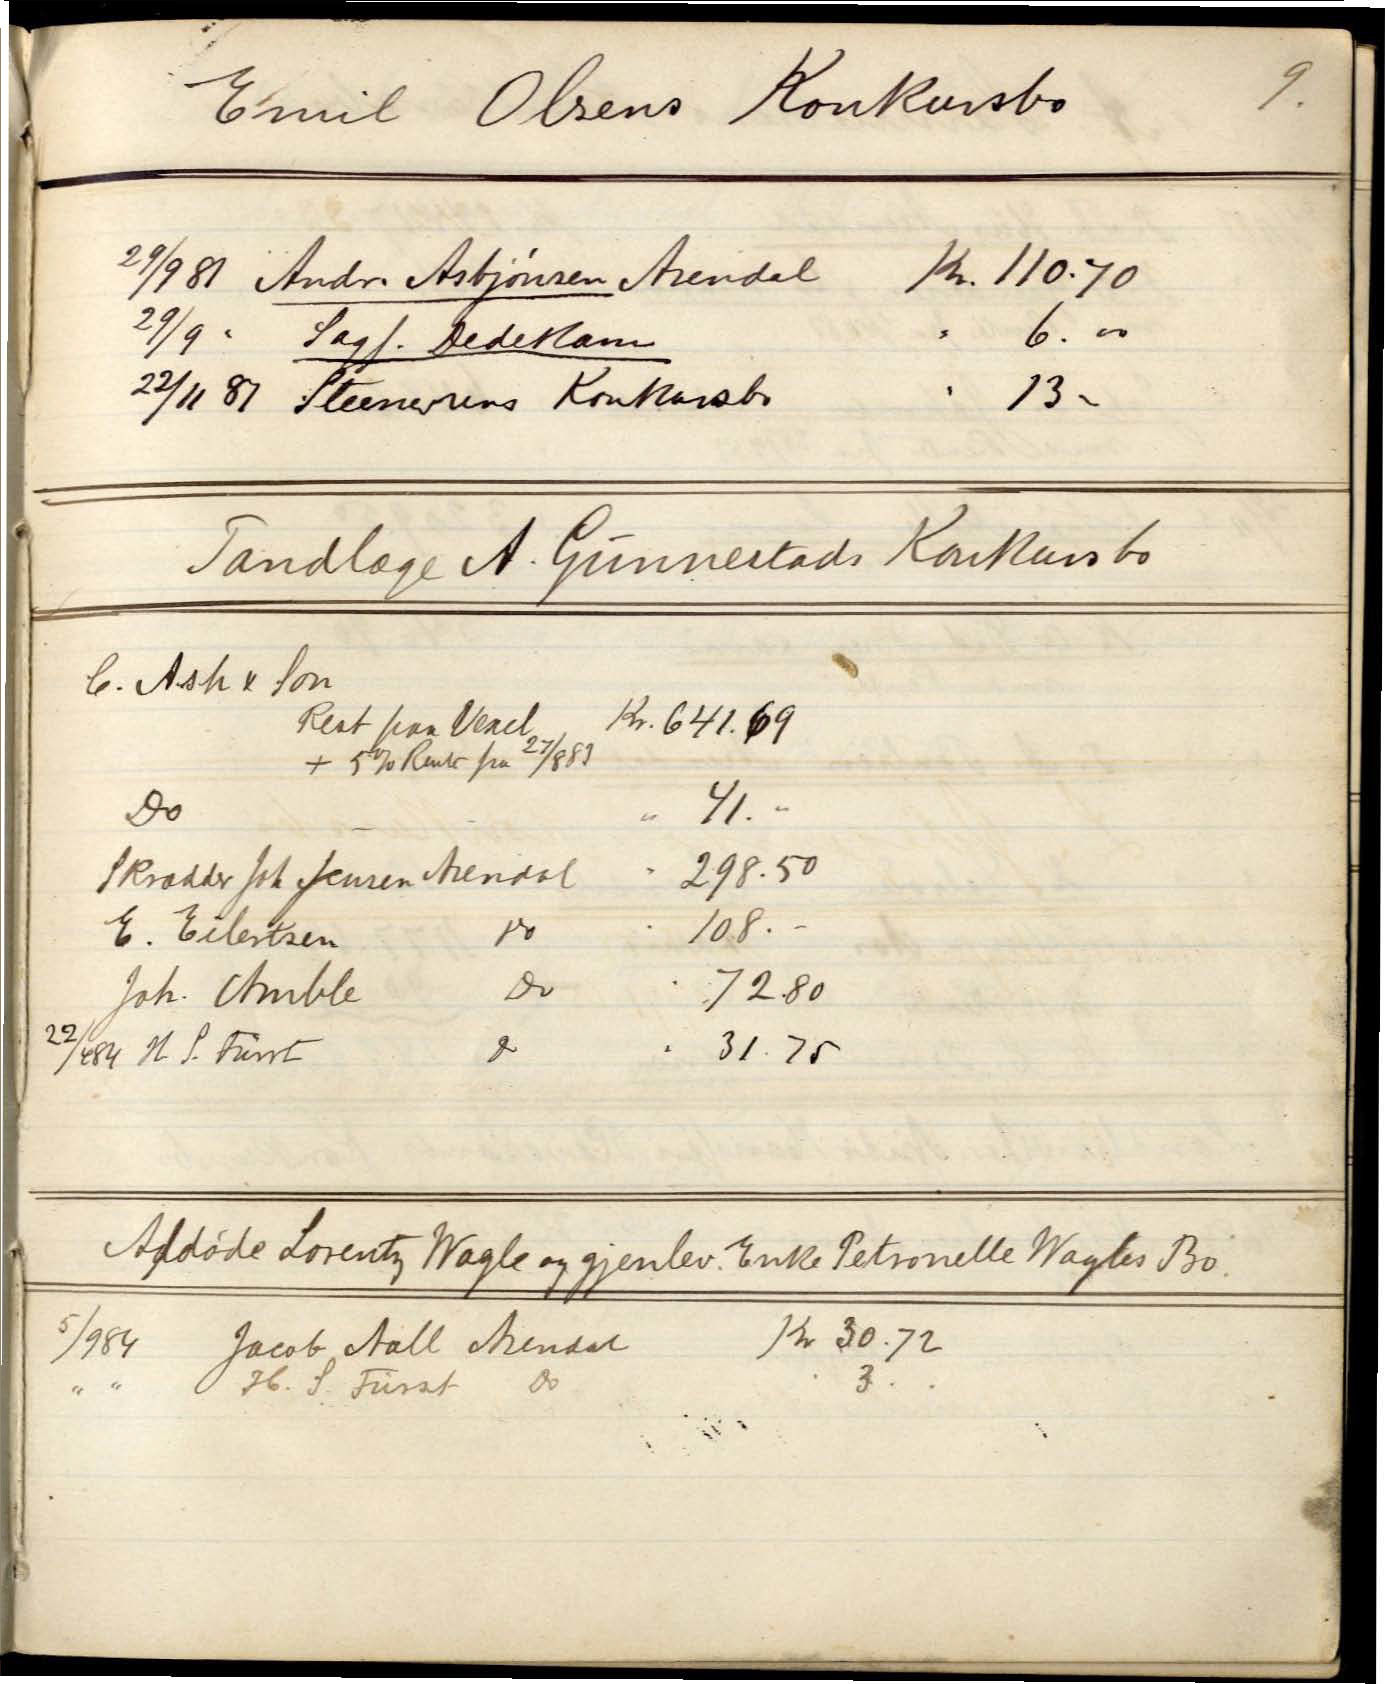 9.
Emil Olsens Konkursbo
29/9 81 Andr. Asbjönsen Arendal Kr. 110.70
29/9 " Sagf. Dedekam " 6. "
22/11 87 Steenersens Konkursbo " 13 -
Tandlæge A. Gunnestads Konkursbo
C. Ash & Son
Rest paa Vexel Kr. 641.69
+ 5% Rente fra 27/8 83
Do " 41. "
Skrædder Joh Jensen Arendal " 298.50
E. Eilertsen Do " 108. -
Joh. Amble Do " 72.80
22/4 84 H. S. Fürst Do " 31.75
Afdöde Lorentz Wagle og gjenlev. Enke Petronelle Wagles Bo.
5/9 84 Jacob Aall Arendal Kr 30.72
" " H. S. Fürst Do " 3. .